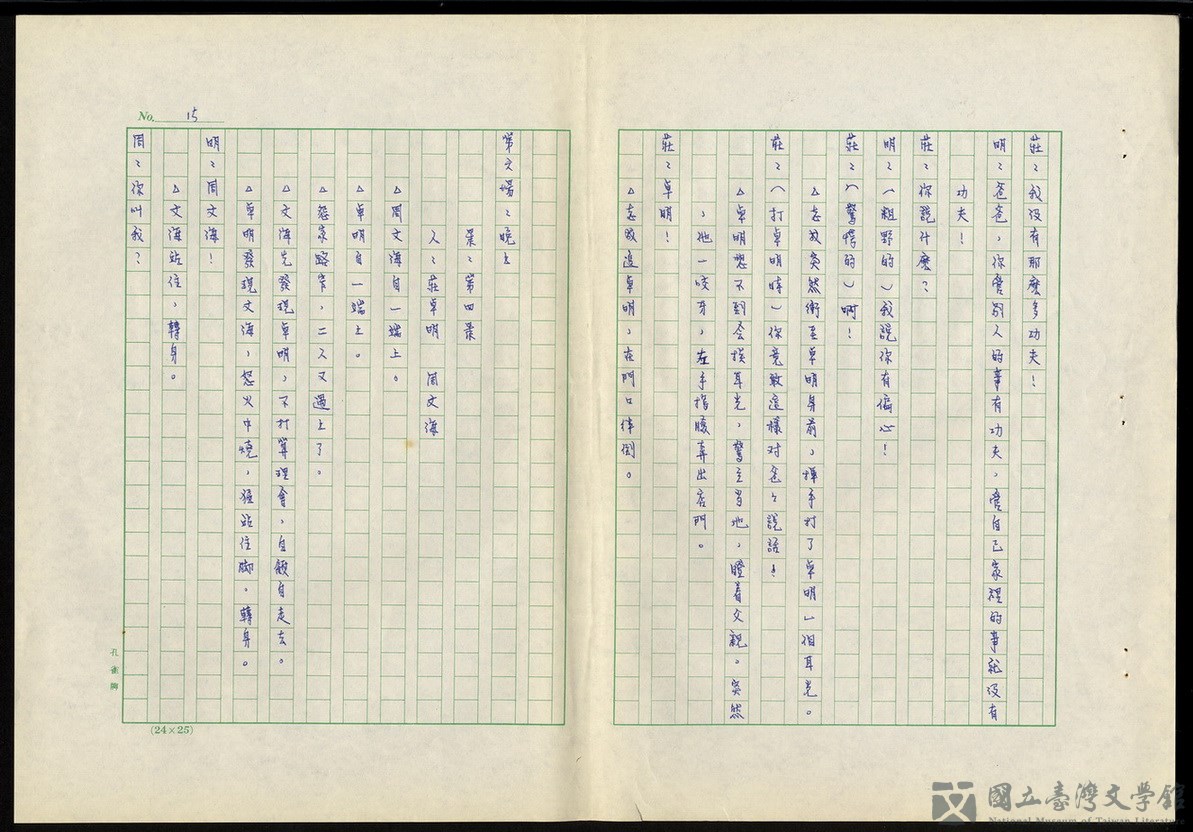 莊:我沒有那麽多功夫!
明:爸爸,你管別人的事有功夫,管自己家裡的事就沒有
功夫!
莊:你說什麽?
明:(粗野的)我說你有偏心!
莊:(驚愕的)啊!
△志毅突然衝至卓明身前,揮手打了卓明一個耳光。
莊:(打卓明時)你竟敢這樣对爸々說話!
△卓明想不到会挨耳光,驚立当地,瞪着父親。突然
,他一咬牙,左手摀臉奔出店門。
莊:卓明!
△志毅追卓明,在門口絆倒。
No. 15
第六場:晚上
景:第四景
人:莊卓明 周文海
△周文海自一端上。
△卓明自一端上。
△怨家路窄,二人又遇上了。
△文海先發現卓明,不打算理會,自顧自走去。
△卓明發現文海,怒火中燒,猛站住脚。轉身。
明:周文海!
△文海站住,轉身。
周:你叫我?
孔雀牌
(24×25)
國立臺灣文學館
National Museum of Taiwan Literature